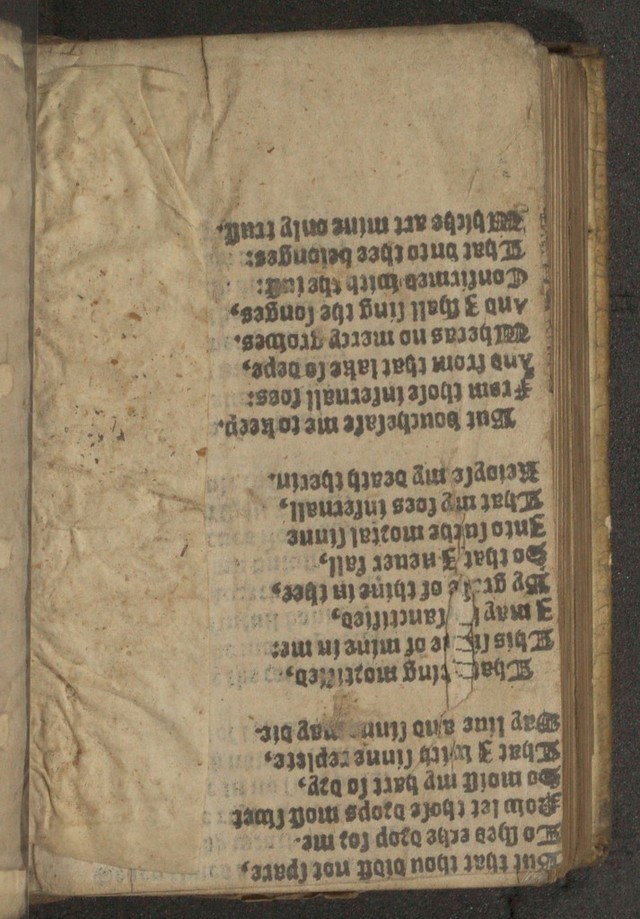 But that thou didst not spare,
To shed eche drop for me.
Now let those drops most swet
So moist my hart so dry,
That I with sinne replete,
May liue and sinne may die.
That mortified,
This of mine in me:
I may sanctified,
By grace of thine in thee,
So that I neuer fall,
Into mortal sinne
That my foes infernall,
Reioyse my death therin.
But vouchsafe me to keep.
From those infernall foes:
And from that lake so depe,
Wheras no mercy growes.
And I shall sing the songes,
Confirmed with the iust:
That vnto thee belonges:
Whiche art mine only trust.